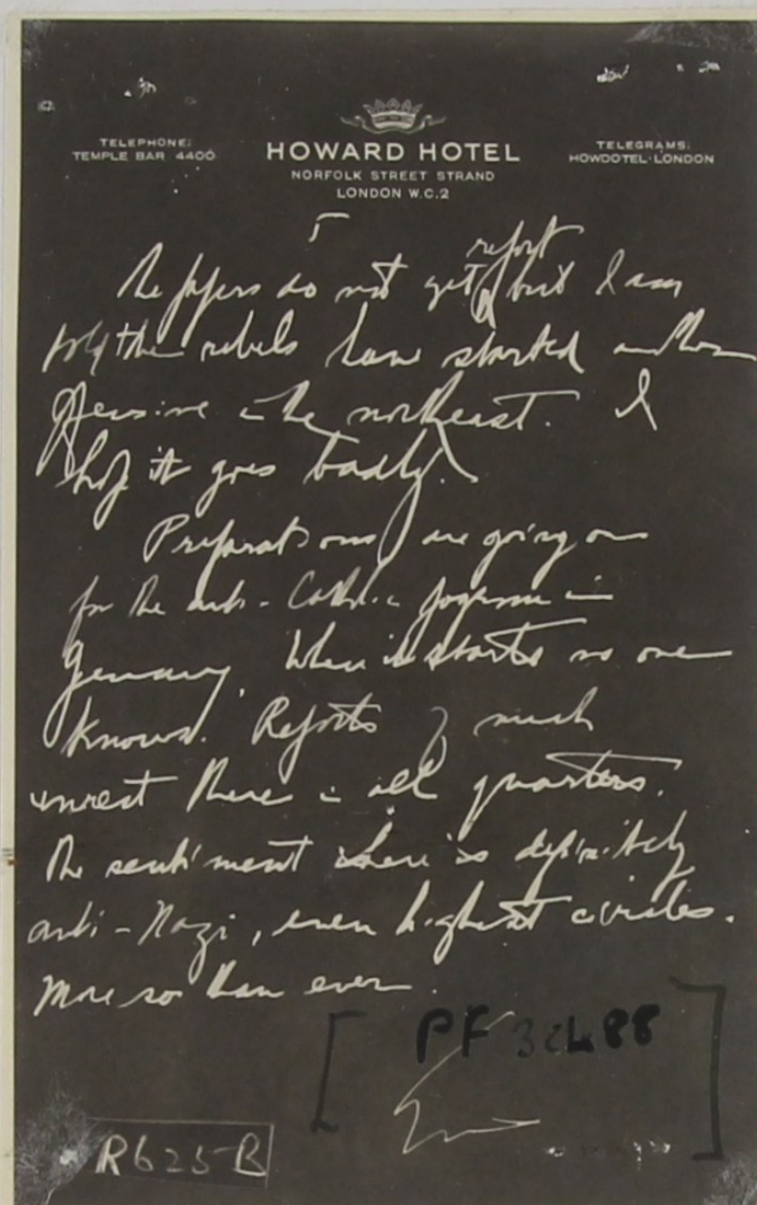 TELEPHONE:
TEMPLE BAR 4400
HOWARD HOTEL
NORFOLK STREET STRAND
LONDON W.C.2
TELEGRAMS:
HOWDOTEL·LONDON
5
report
The papers do not get but I am
told the rebels have started another
offensive in the northeast. I
hope it goes badly.
Preparations are going on
for the anti-Catholic pogrom in
Germany. When it starts no one
knows. Reports of much
unrest there in all quarters.
The sentiment here is definitely
anti-Nazi, even highest circles.
More so than ever.
PF 32488
R625-B